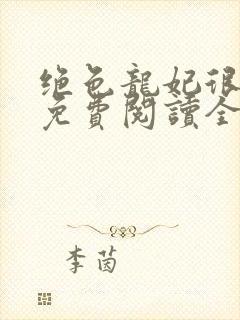 绝色龍妃很
免費閱讀全
李茵